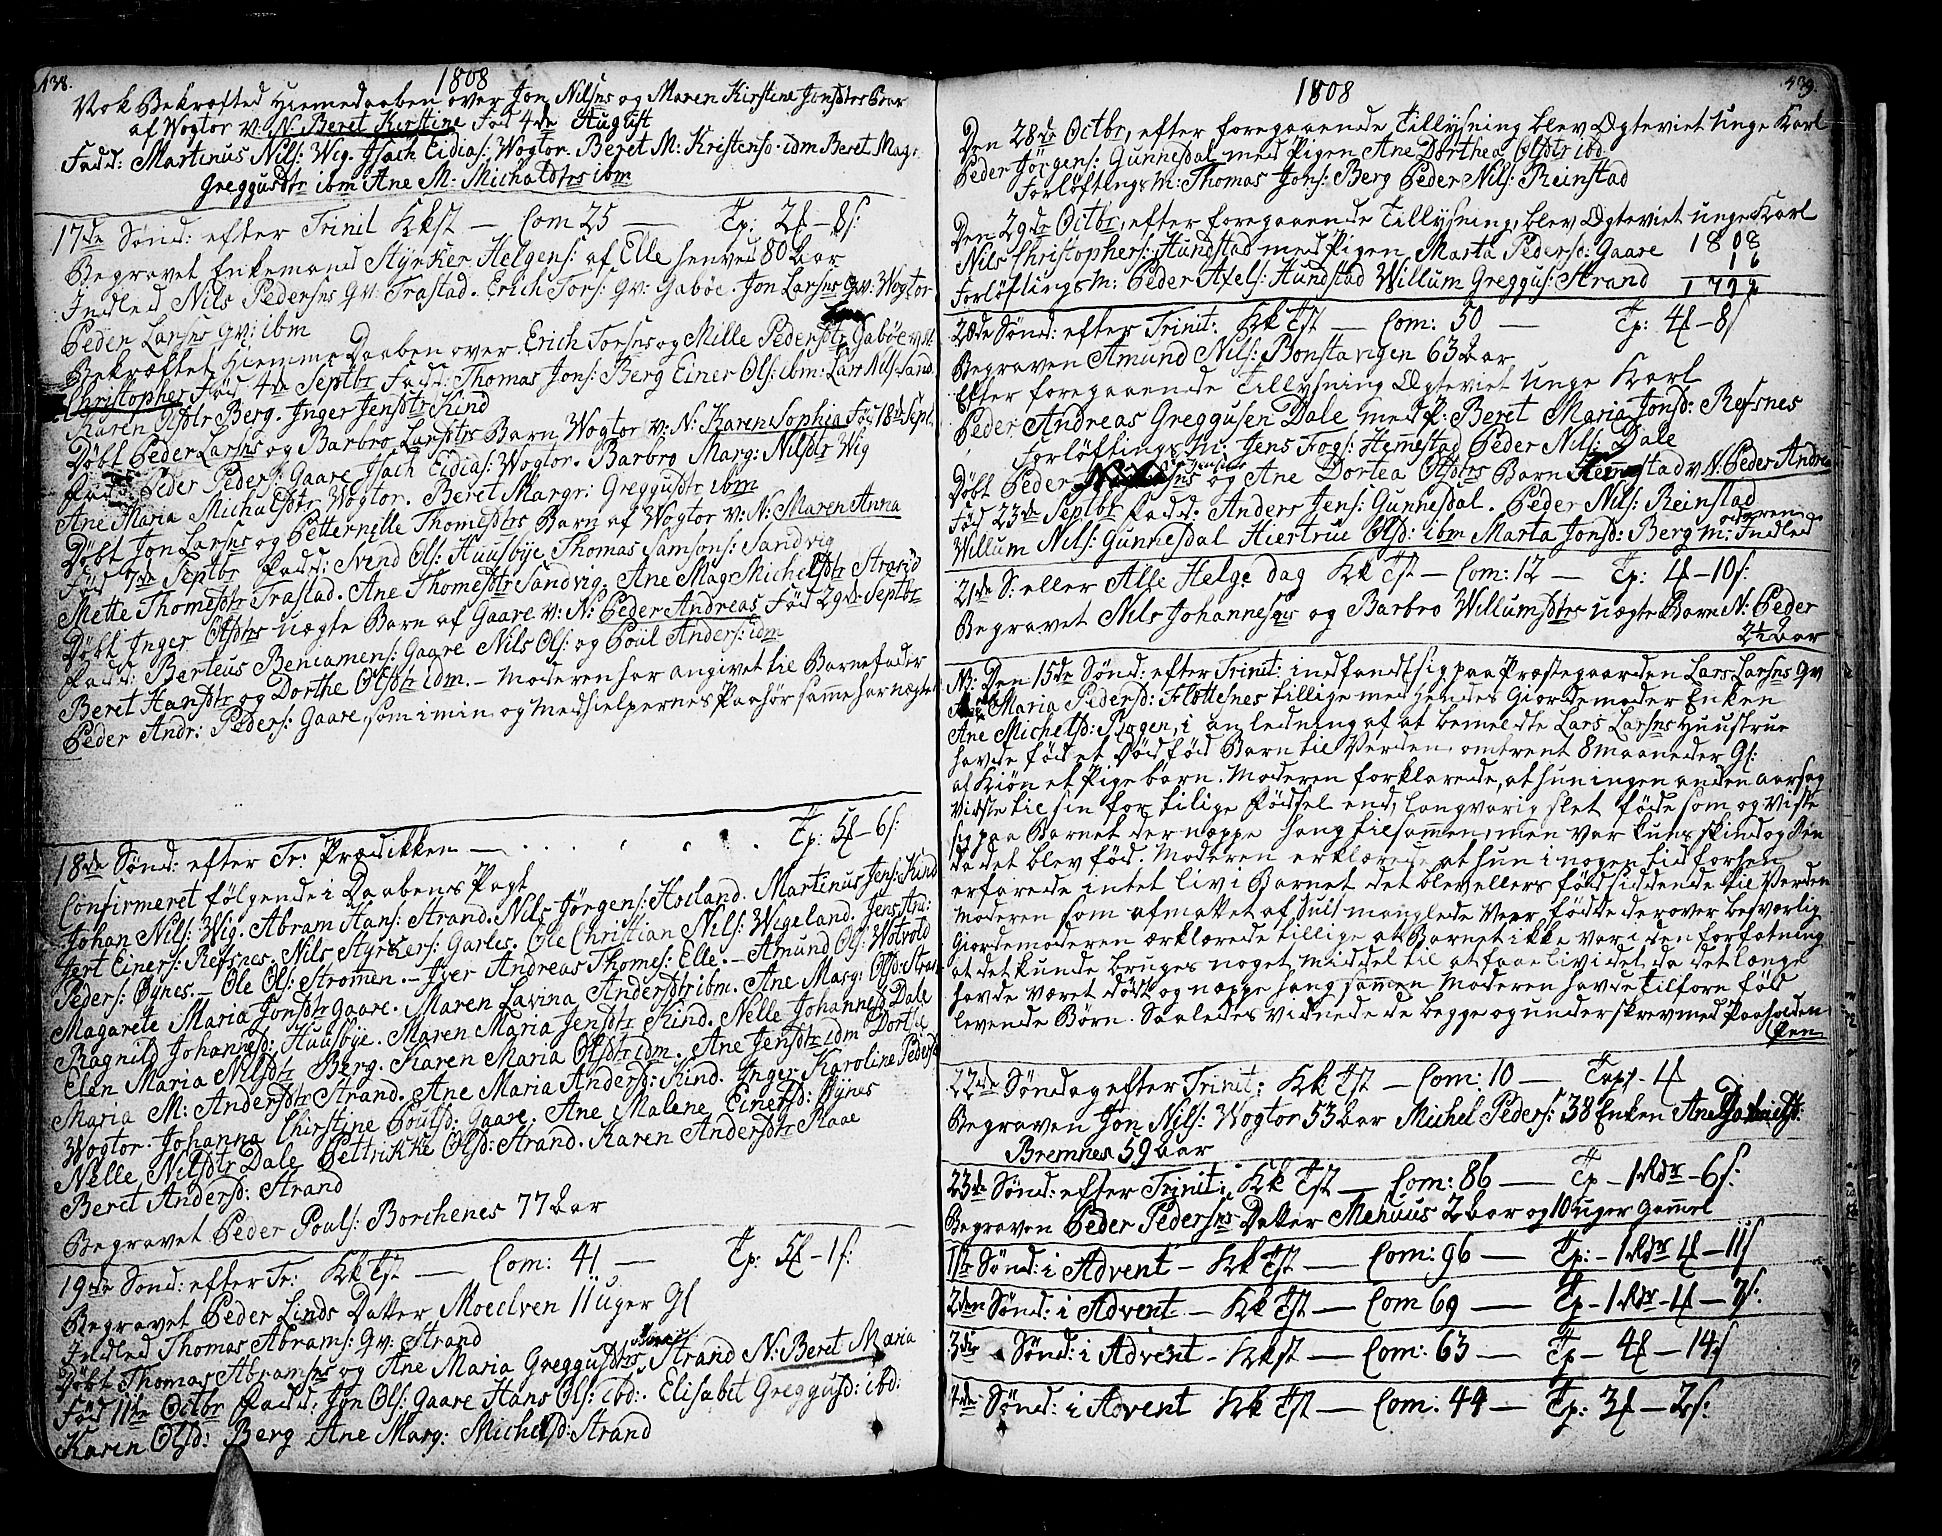 438.
1808
Nok Bekræfted Hiemedaaben over Jon Nilsns og Maren Kirstine Jonsdtrs Barn
af Wogtor v: N: Beret Kirstine Fød 4de August
Fadd: Martinus Nils: Wig. Isach Eidias: Wogtor. Beret M: Kristensd. ibm Beret Mag:
Greggusdtr ibm. Ane M: Michalsdtrs ibm
17de Sønd: efter Trinit Kkst — Com 25 — Tp: 2f — 8s:
Begravet Enkemand Hyrker Helgens: af Elle henved 80 Aar
Indled Nils Pedersns Qv: Trastad. Erich Tors: Qv: Gabøe. Jon Larsns Qv: Wogtor
Peder Larsns Qv: ibm
Bekræftet Hiemme Daaben over Erich Torsns og Mille Pedersdtr Gabøe v: N:
Christopher Fød 4de Septbr Fadd: Thomas Jons: Berg Einer Ols: ibm: Lars Nils: Sand.
Karen Olsdtr Berg. Inger Jensdtr Kind
Døbt Peder Larsns og Barbro Larsdtrs Barn Wogtor v: N: Karen Sophia Fød 18de Sept.
Fadd: Peder Peders: Gaare Isach Eidias: Wogtor. Barbro Marg: Nilsdtr Wig
Ane Maria Michalsdtr Wogtor. Beret Margr: Greggusdtr ibm
Døbt Jon Larsns og Petternelle Thomesdtrs Barn af Wogtor v: N: Maren Anna
Fød 7de Septbr Fadd: Svend Ols: Huusbye Thomas Samsons: Sandvig
Mette Thomesdtr Trastad. Ane Thomesdtr Sandvig. Ane Mag: Michelsdtr Strand
Døbt Inger Olsdtrs uægte Barn af Gaare v: N: Peder Andreas Fød 29de Septbr
Fadd: Berteus Beniamens: Gaare Nils Ols: og Poul Anders: ibm
Beret Hansdtr og Dorthe Olsdtr ibm. — Moderen har angivet til Barnefader
Peder Andr: Peders: Gaare, som i min og Medhielpernes Paahør samme har nægtet
18de Sønd: efter Tr: Prædikken — Tp: 5f — 6s:
Confirmeret følgende i Daabens Pagt
Johan Nils: Wig. Abram Hans: Strand. Nils Jørgens: Hoiland. Martinus Jens: Kind
Jert Einers: Refsnes. Nils Styrkers: Garles. Ole Christian Nils: Wigeland. Jens An:
Peders: Øynes. — Ole Ols: Strømen. — Iver Andreas Thomes: Elle. — Amund Ols: Wotvold
Magarete Maria Jonsdtr Gaare. Maren Lavina Andersdtr ibm. Ane Marg: Olsd: Stran
Ragnild Johannesd: Huusbye. Maren Maria Jensdtr Kind. Nelle Johannesd Dale
Elen Maria Nilsdtr Berg. Karen Maria Olsdtr ibm. Ane Jensdtr ibm Dorthe
Maria M: Andersdtr Strand. Ane Maria Andersd: Kind. Inger Karoline Pedersd
Wogtor. Johanna Christine Poulsd: Gaare. Ane Malene Einersd: Øynes
Nelle Nilsdtr Dale Pettrikke Olsd: Strand. Karen Andersdtr Raae
Beret Andersd: Strand
Begravet Peder Pouls: Borchenes 77 Aar
19de Sønd: efter Tr: Kk Tst — Com: 41 — Tp: 5f — 1s:
Begravet Peder Linds Datter Moelven 11 uger Gl
Indled Thomas Abrams: Qv: Strand
Døbt Thomas Abramsns og Ane Maria Greggusdtrs Barn Strand N: Beret Maria
Fød 11te Octbr Fadd: Jon Ols: Gaare Hans Ols: ibd: Elisabet Greggusd: ibd:
Karen Olsd: Berg Ane Marg: Michelsd: Strand
439.
1808
Den 28de Octbr, efter foregaaende Tillysning blev Ægteviet Unge Karl
Peder Jørgens: Gunnesdal med Pigen Ane Dorthea Olsdtr ibd:
Forløftings M: Thomas Jons: Berg Peder Nils: Reinstad
Den 29de Octbr, efter foregaaende Tillysning, blev Ægteviet unge Karl
Nils Christophers: Hundstad med Pigen Marta Pedersd: Gaare 1808
16
Forløftings M: Peder Axels: Hundstad Willum Greggus: Strand 1792
20de Sønd: efter Trinit: Kk Tst — Com: 50 — Tp: 4f — 8s
Begraven Amund Nils: Bonstangen 63 Aar
Efter foregaaende Tillysning Ægteviet Unge Karl
Peder Andreas Greggusen Dale med P: Beret Maria Jonsd: Refsnes
Forløftings M: Jens Fogs: Hemestad Peder Nils: Dale
Døbt Peder Jensens og Ane Dortea Olsdtrs Barn Hemstad v N: Peder Andrea
Fød 23de Septbr Fadd: Anders Jens: Gunnesdal. Peder Nils: Reinstad
Willum Nils: Gunnesdal Hiertrue Olsd: ibm Marta Jonsd: Berg Moderen Indled
21de S: eller Alle Helge dag Kk Tst — Com: 12 — Tp: 4f — 10s:
Begravet Nils Johannesns og Barbro Willumsdtrs uægte Barn N: Peder
2½ Aar
N: Den 15de Sønd: efter Trinit: indfandt sig paa Præstegaarden Lars Larsns Qv
Maria Pedersd: Flottesnes tillige med hendes Giordemoder Enken
Ane Michelsd: Plogen, i anledning af at bemeldte Lars Larsns Huustrue
havde fød et Dødfød Barn til Verden omtrent 8 maaneder Gl:
af Kiøn et Pigebarn. Moderen forklarede, at hun ingen anden aarsag
vidste til sin for tilige Fødsel end, langvarig slet føde som og viste
sig paa Barnet der nappe hang tilsammen, men var kuns skind og Been
da det blev fød. Moderen erklærede at hun i nogen tid forhen
erfarede intet liv i Barnet det blev ellers fød siddende til Verden
Moderen som afmattet af Sult manglede Veer, fødde derover besværlig
Giordemoderen ærklærede tillige at Barnet ikke var i den forfatning
at det kunde bruges noget middel til at faae liv i det, da det længe
havde været dødt og nappe hang sammen Moderen havde tilforn fød
levende Børn. Saaledes vidnede de begge og underskrev med Paaholden
Pen
22de Søndag efter Trinit: Kk Tst — Com: 10 — Tapf — 4f
Begraven Jon Nils: Wogtor 53 Aar Michel Peders: 38 Enken Ane
Bremnes 59 Aar
23de Sønd: efter Trinit: Kk Tst — Com: 86 — Tp — 1 Rdr — 6s:
Begraven Peder Pedersns Datter Mehuus 2 Aar og 10 uger Gammel
1ste Sønd: i Advent — Kk Tst — Com: 96 — Tp: — 1 Rdr 4f — 11s
2den Sønd: i Advent — Kk Tst — Com 69 — Tp — 1 Rdr — 4f — 7s:
3die Sønd: i Advent — Kkst — Com: 63 — Tp — 4f — 14s
4de Sønd: i Advent Kk Tst — Com: 44 — Tp: 3f — 2s: